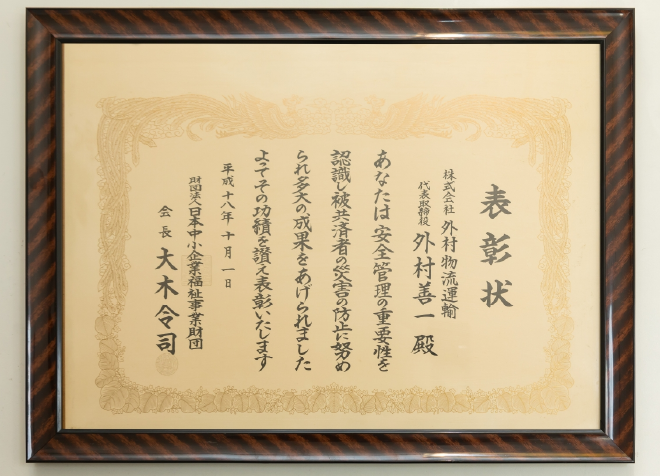 表彰状
株式会社 外村物流運輸
代表取締役 外村善一殿
あなたは安全管理の重要性を
認識し被共済者の災害の防止に努め
られ多大の成果をあげられました
よってその功績を讃え表彰いたします
平成十八年十月一日
財団法人日本中小企業福祉事業財団
会長 大木令司